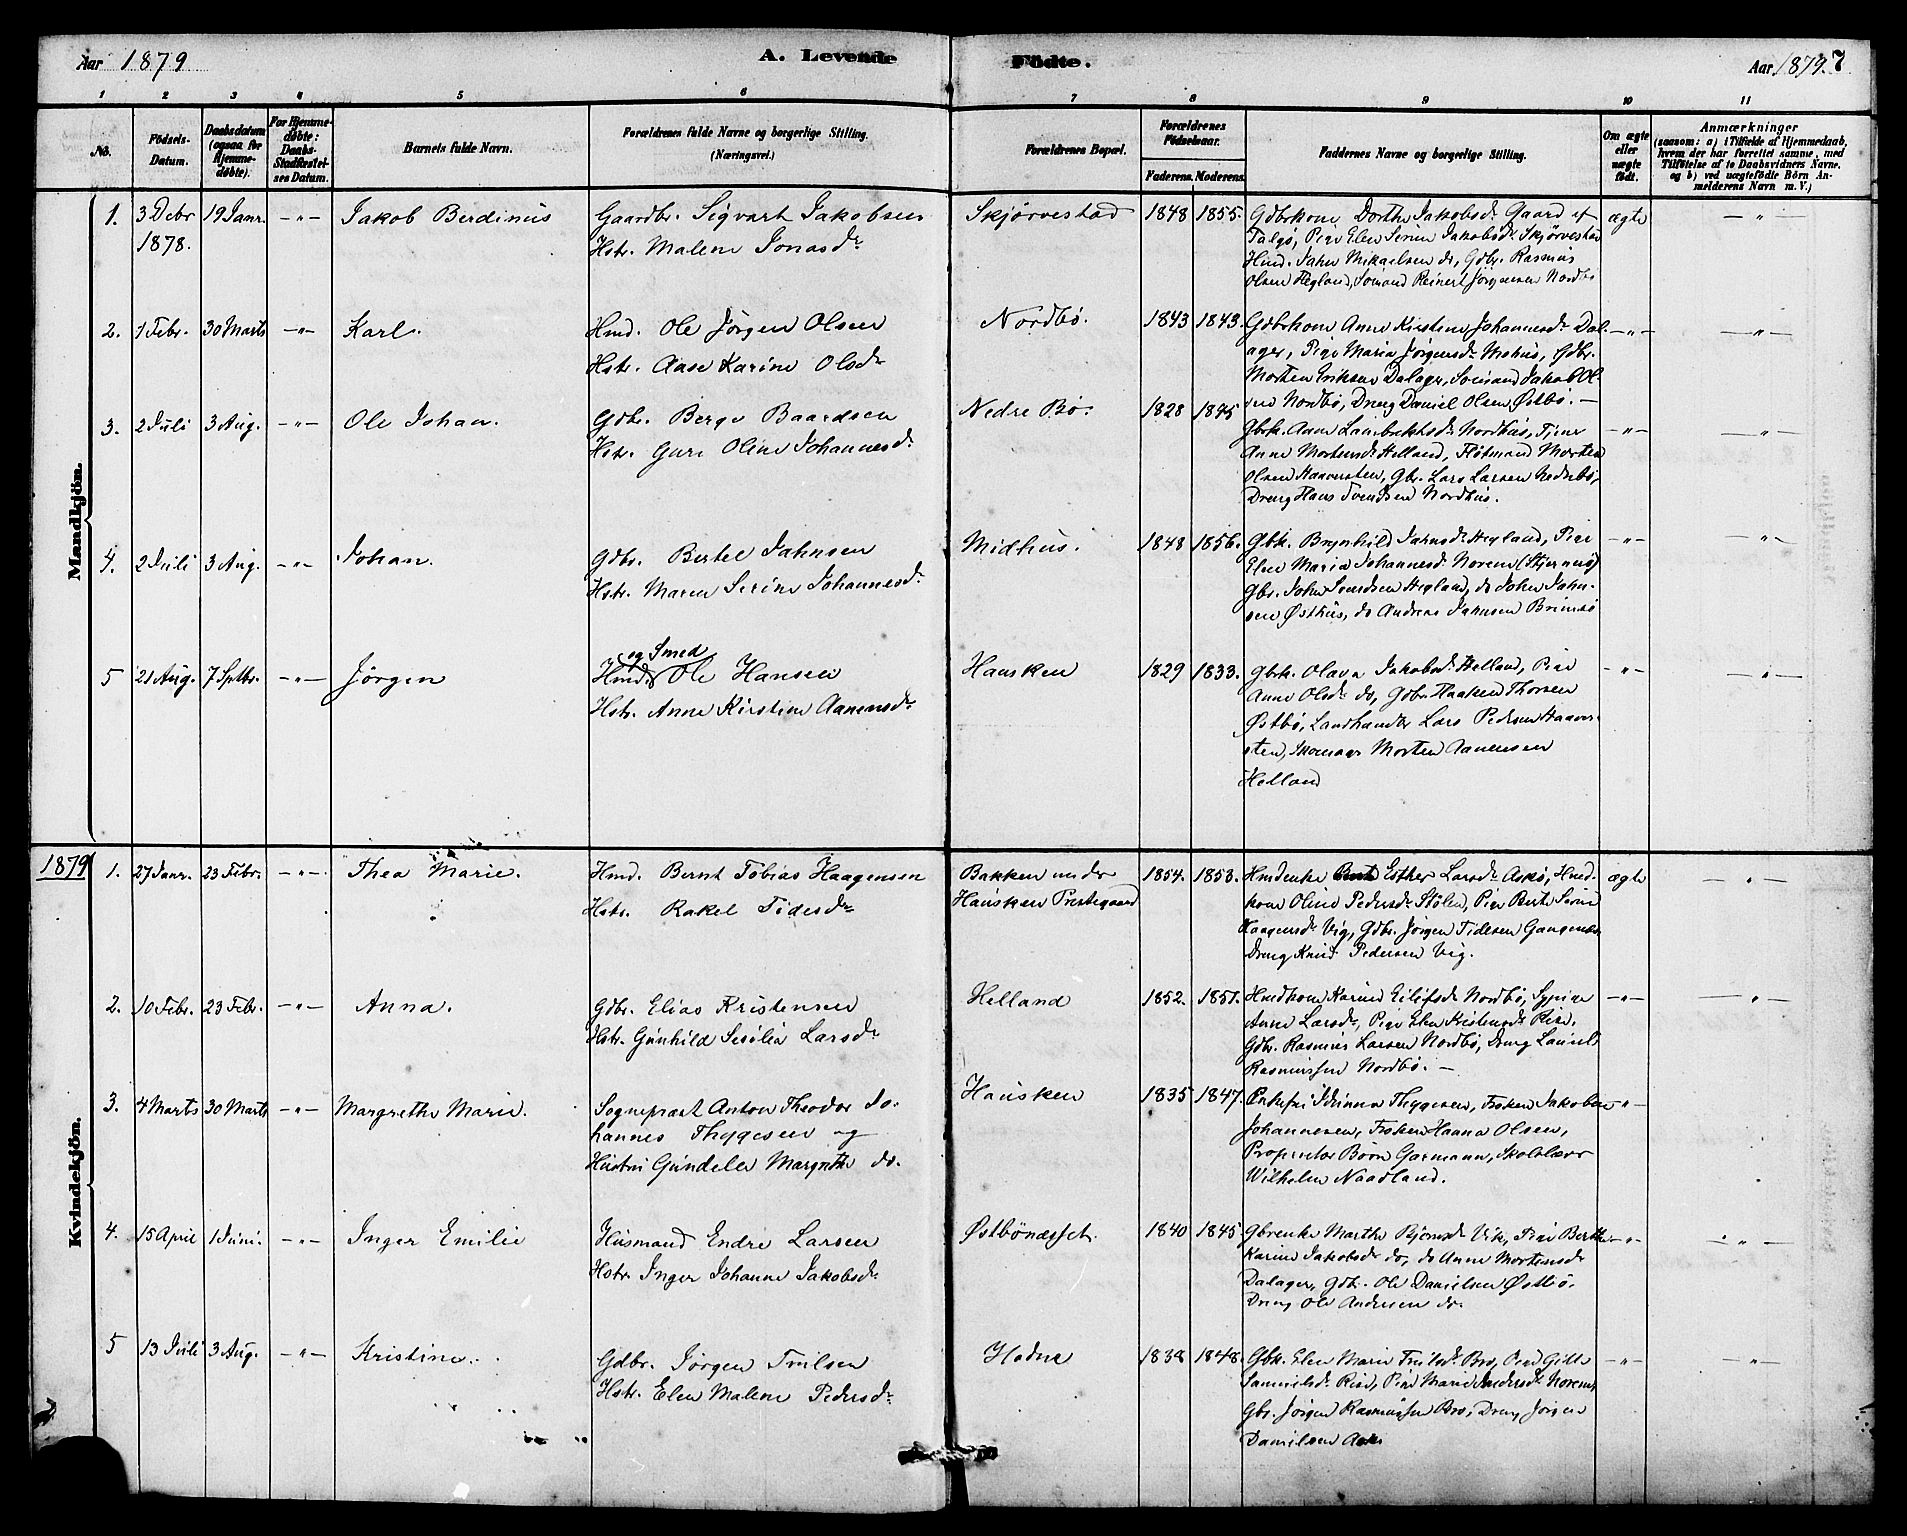 Aar 1879
A. Levende
Födte.
Aar 1879. 7
1 2 3 4 5 6 7 8 9 10 11
No.
Födsels-
Datum.
Daabsdatum
(ogsaa for
Hjemme-
døbte).
For Hjemme-
døbte:
Daabs-
Stadfæstel-
ses Datum.
Barnets fulde Navn.
Forældrenes fulde Navne og borgerlige Stilling.
(Næringsvei.)
Forældrenes Bopæl.
Forældrenes
Födselsaar.
Faderens. Moderens.
Faddernes Navne og borgerlige Stilling.
Om ægte
eller
uægte
födt.
Anmærkninger
(saasom: a) i Tilfælde af Hjemmedaab,
hvem der har forrettet samme, med
Tilföielse af to Daabsvidners Navne,
og b) ved uægtefödte Börn An-
melderens Navn m. V.)
Mandkjön.
1. 3 Debr 19 Janr. -"- Jakob Berdinus
1878.
Gaardbr. Sigvart Jakobsen
Hstr. Malene Jonasdr
Skjörvestad 1848 1855.
Gdbrkone Dorthe Jakobsdr Gaard af
Talgö, Pige Elen Serine Jakobsdr Skjörvestad
Hmd. Jahn Mikaelsen do, Gdbr. Rasmus
Olsen Hegland, Sömand Reinert Jörgensen Nordbö
ægte -"-
2. 1 Febr. 30 Marts -"- Karl.
Hmd. Ole Jörgen Olsen
Hstr. Aase Karine Olsdr
Nordbö. 1843 1843.
Gdbrkone Anne Kirstine Johannesdr Dal-
ager, Pige Maria Jörgensdr Mehus, Gdbr.
Morten Eriksen Dalager, Sömand Jakob Ol-
sen Nordbö, Dreng Daniel Olsen Østbö. -
-"- -"-
3. 2 Juli 3 Aug. -"- Ole Johan.
Gdbr. Berge Baardsen
Hstr. Guri Oline Johannesdr
Nedre Bö. 1828 1845
Gbrk. Anne Lambrektsdr Nordhus, Pige
Anne Mortensdr Helland, Flötmand Morten
Olsen Haaversten, Gbr. Lars Larsen Nedrebö,
Dreng Hans Svendsen Nordhus.
-"- -"-
4. 2 Juli 3 Aug. -"- Johan.
Gdbr. Bertel Jahnsen
Hstr. Maren Serine Johannesdr
Midhus. 1848 1856.
Gbk. Brynhild Jahnsdr Hegland, Pige
Elen Maria Johannesdr Norem (Stjernö)
Gbr. John Svendsen Hegland, do John Jahn-
sen Østhus, do Andreas Jahnsen Brimsö
-"- -"-
5 21 Aug. 7 Sptbr. -"- Jörgen
og Smed
Hmd. Ole Hansen
Hstr. Anne Kirstine Aanensdr
Hausken 1829 1833.
Gbrk. Olava Jakobsdr Helland, Pige
Anne Olsdr do, Gdbr. Haaken Thorsen
Østbö, Landhandler Lars Pedersen Haaver-
sten, Skomager Morten Aanensen
Helland
-"- -"-
1879
Kvindekjön.
1. 27 Janr. 23 Febr. -"- Thea Marie.
Hmd. Bernt Tobias Haagensen
Hstr. Rakel Tidesdr
Bakken under
Hausken Prestegaard
1854. 1853.
Hmdenke Esther Larsdr Askö, Hmd-
kone Oline Pedersdr Stölen, Pige Berte Serine
Haagensdr Vig, Gdbr. Jörgen Tidesen Gangenes
Dreng Knud Pedersen Vig.
ægte -"-
2. 10 Febr. 23 Febr. -"- Anna.
Gdbr. Elias Kristensen
Hstr. Gunhild Sesilia Larsdr
Helland 1852. 1851.
Hmdkone Karine Eilifsdr Nordbö, Sypige
Anne Larsdr, Pige Elen Kristensdr Rise.
Gdbr. Rasmus Larsen Nordbö, Dreng Laurits
Rasmussen Nordbö. -
-"- -"-
3. 4 Marts 30 Marts -"- Margrethe Marie.
Sognepræst Anton Theodor Jo-
hannes Thygesen og
Hustru Gundele Margrethe do.
Hausken 1835 1847.
Enkefru Thygesen, Fröken Jakobine
Johannesen, Fröken Hanna Olsen,
Proprietær Börn Garmann, Skolelærer
Wilhelm Naadland.
-"-
4. 15 April 1 Juni. -"- Inger Emilie
Husmand Endre Larsen
Hstr. Inger Johanne Jakobsdr
Østbönesset. 1840 1845.
Gbrenke Marthe Björnsdr Vik, Pige Berthe
Karine Jakobsdr do, do Anne Mortensdr
Dalager, Gdbr. Ole Danielsen Østbö.
Dreng Ole Andersen do.
-"- -"-
5 13 Juli 3 Aug. -"- Kristine.
Gdbr. Jörgen Trulsen
Hstr. Elen Malene Pedersdr
Hodne 1838 1848.
Gbk. Elen Marie Trulsdr Bro, Pige Gitte
Samuelsdr Rise, Pige Marie Andersdr Norem,
Gbr. Jörgen Rasmussen Bro, Dreng Jörgen
Danielsen Askö
-"- -"-